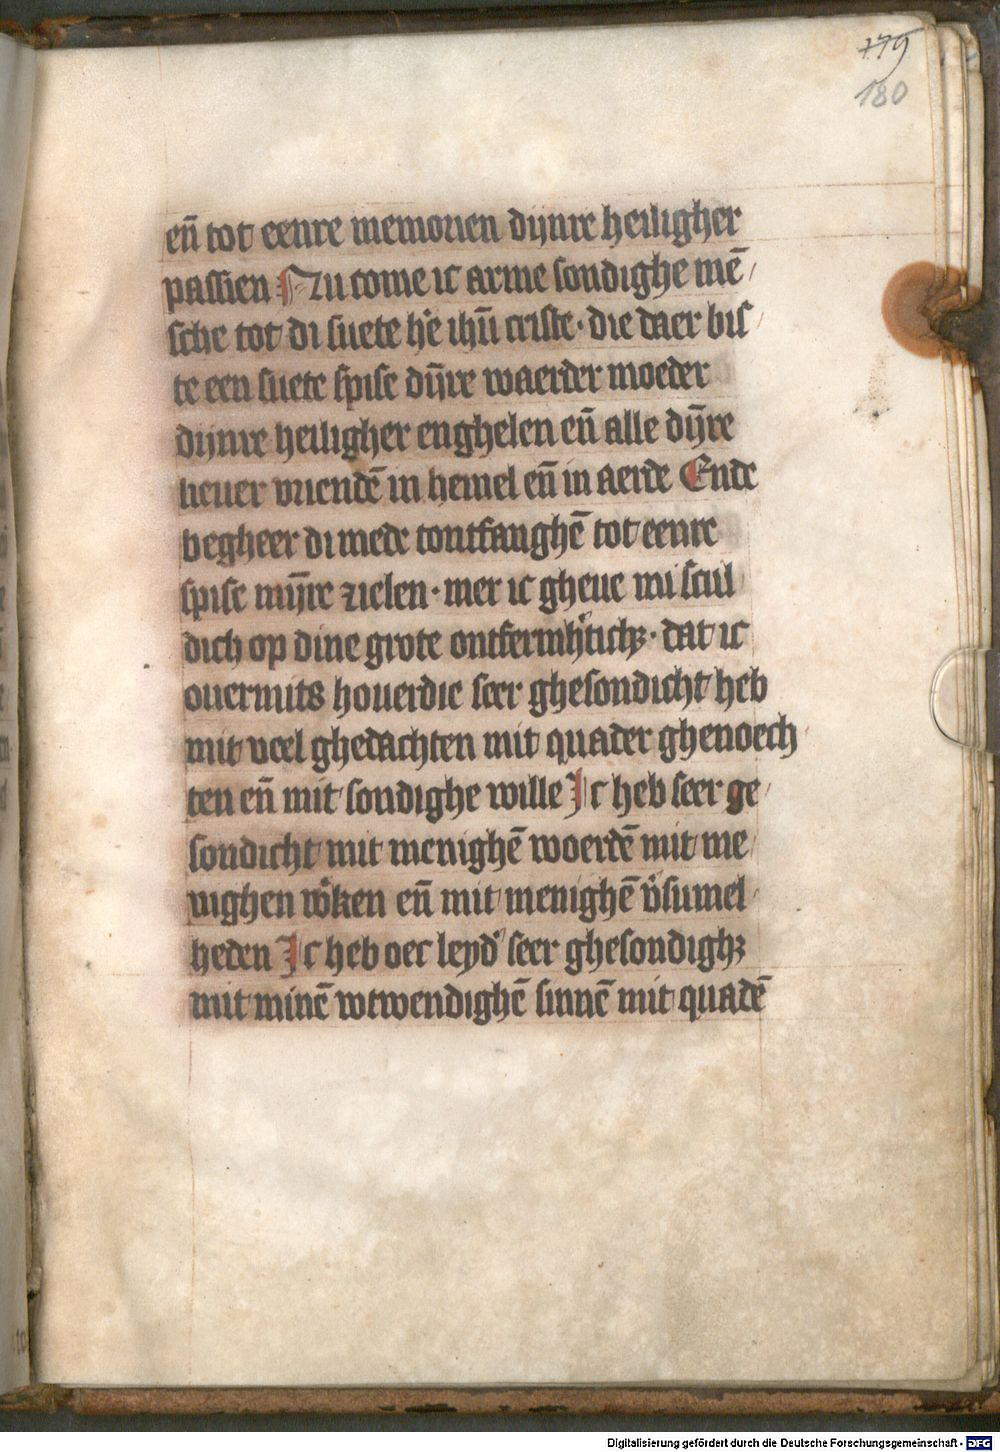 179
180
en̄ tot eenre memorien dijnre heiligher
passien Nu come ic arme sondighe mē/
sche tot di suete h̓e ihū criste · die daer bis/
te een suete spise dīj̄re waerder moeder
dijnre heiligher enghelen en̄ alle dīj̄re
lieuer vriendē in hemel en̄ in aerde Ende
begheer di mede tontfanghē tot eenre
spise mīj̄re zielen · mer ic gheue mi scul
dich op dine grote ontfermh̓tichꝫ · dat ic
ouermits houerdie seer ghesondicht heb
mit veel ghedachten mit quader ghenoech/
ten en̄ mit sondighe wille Ic heb seer ge/
sondicht mit menighē woerdē mit me/
nighen w̓ken en̄ mit menighē v̓sumel/
heden Ic heb oec leyd̓ seer ghesondighꝫ
mit minē wtwendighē sinnē mit quadē
Digitalisierung gefördert durch die Deutsche Forschungsgemeinschaft - DFG